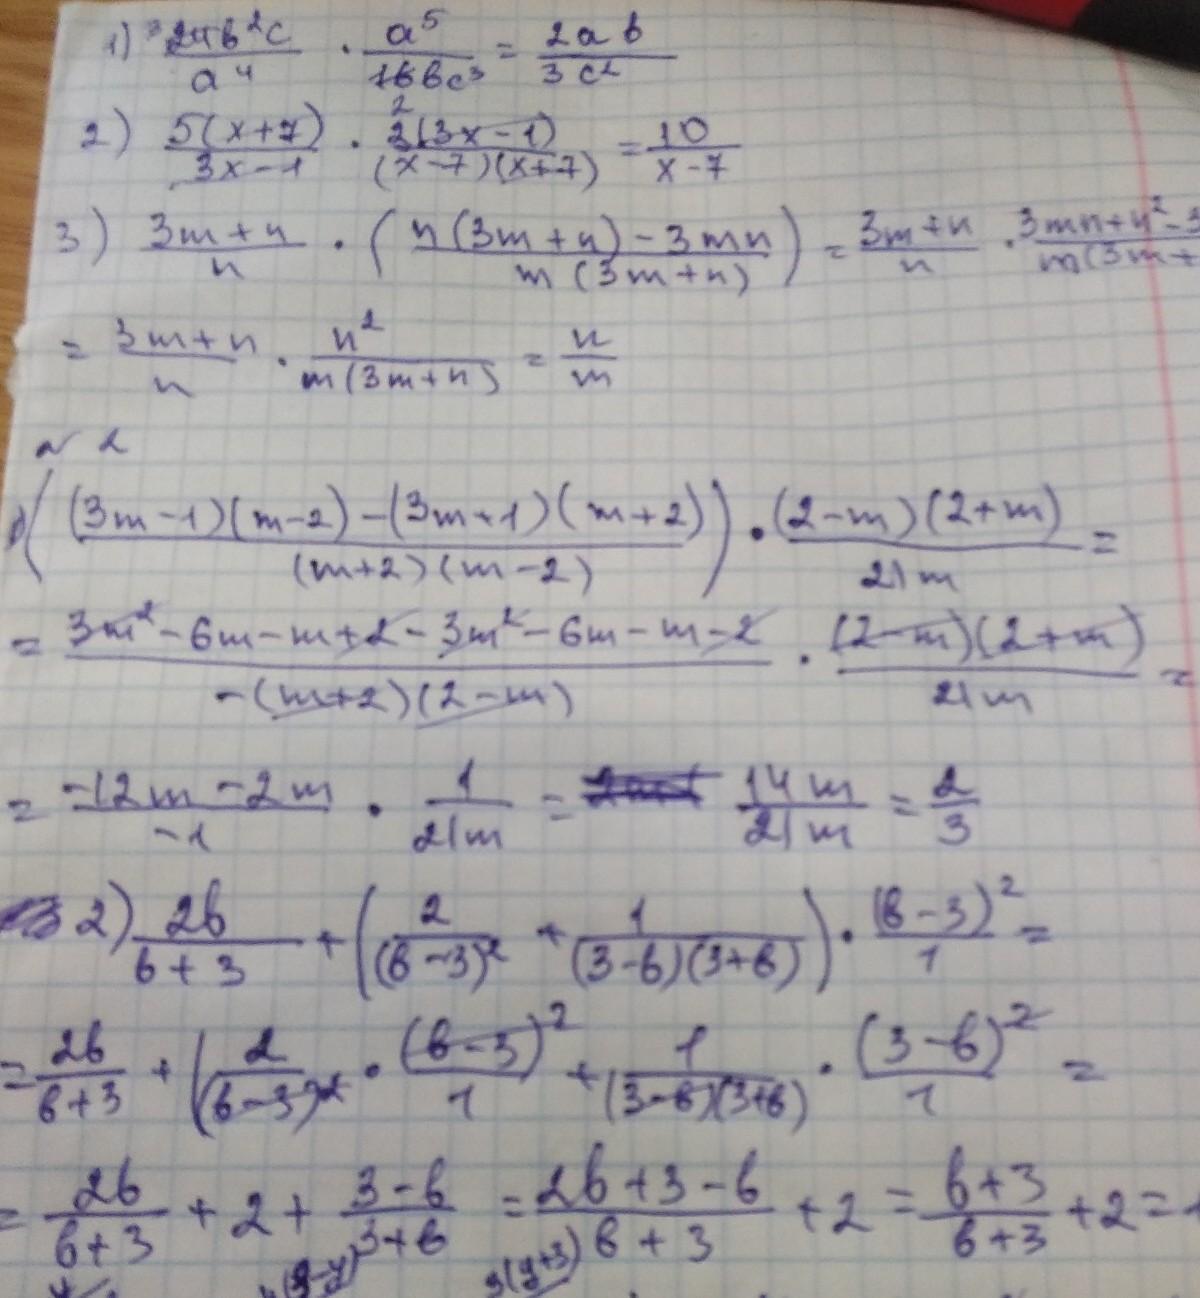 1) 24b²c/a⁴ · a⁵/16bc³ = 2ab/3c²
2) 5(x+7)/3x-1 · 2(3x-1)/(x-7)(x+7) = 10/x-7
3) 3m+n/n · (n(3m+n)-3mn/m(3m+n)) = 3m+n/n · 3mn+n²-3/m(3m+
= 3m+n/n · n²/m(3m+n) = n/m
N 2
1) ((3m-1)(m-2)-(3m+1)(m+2)/(m+2)(m-2)) · (2-m)(2+m)/21m =
= 3m²-6m-m+2-3m²-6m-m-2/-(m+2)(2-m) · (2-m)(2+m)/21m =
= -12m-2m/-1 · 1/21m = 14m/21m = 2/3
2) 2b/b+3 + (2/(b-3)² + 1/(3-b)(3+b)) · (b-3)²/1 =
= 2b/b+3 + (2/(b-3)² · (b-3)²/1 + 1/(3-b)(3+b) · (3-b)²/1 =
= 2b/b+3 + 2 + 3-b/3+b = 2b+3-b/b+3 + 2 = b+3/b+3 + 2 =